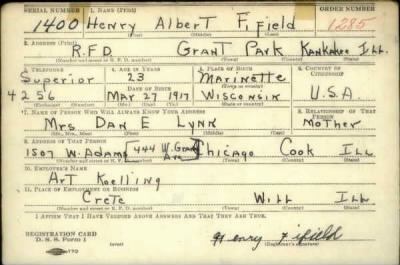 SERIAL NUMBER 1. NAME (Print) ORDER NUMBER
1400 Henry Albert Fifield 1285
(First) (Middle) (Last)
2. ADDRESS (Print)
R.F.D. Grant Park Kankakee Ill.
(Number and street or R. F. D. number) (Town) (County) (State)
3. TELEPHONE 4. AGE IN YEARS 5. PLACE OF BIRTH 6. COUNTRY OF CITIZENSHIP
Superior 23 Marinette
DATE OF BIRTH (Town or county)
4256 Mar 27 1917 Wisconsin U.S.A.
(Mo.) (Day) (Yr.) (State or country)
7. NAME OF PERSON WHO WILL ALWAYS KNOW YOUR ADDRESS 8. RELATIONSHIP OF THAT PERSON
Mrs Dan E Lynn Mother
(Mr., Mrs., Miss) (First) (Middle) (Last)
9. ADDRESS OF THAT PERSON
1507 W. Adams [444 W. Grant Chicago Cook Ill
(Number and street or R. F. D. number) (Town) (County) (State)
10. EMPLOYER'S NAME
Art Koelling
11. PLACE OF EMPLOYMENT OR BUSINESS
Crete Will Ill
(Number and street or R. F. D. number) (Town) (County) (State)
I AFFIRM THAT I HAVE VERIFIED ABOVE ANSWERS AND THAT THEY ARE TRUE.
REGISTRATION CARD
D. S. S. Form 1 (over) Henry Fifield
(Registrant's signature)